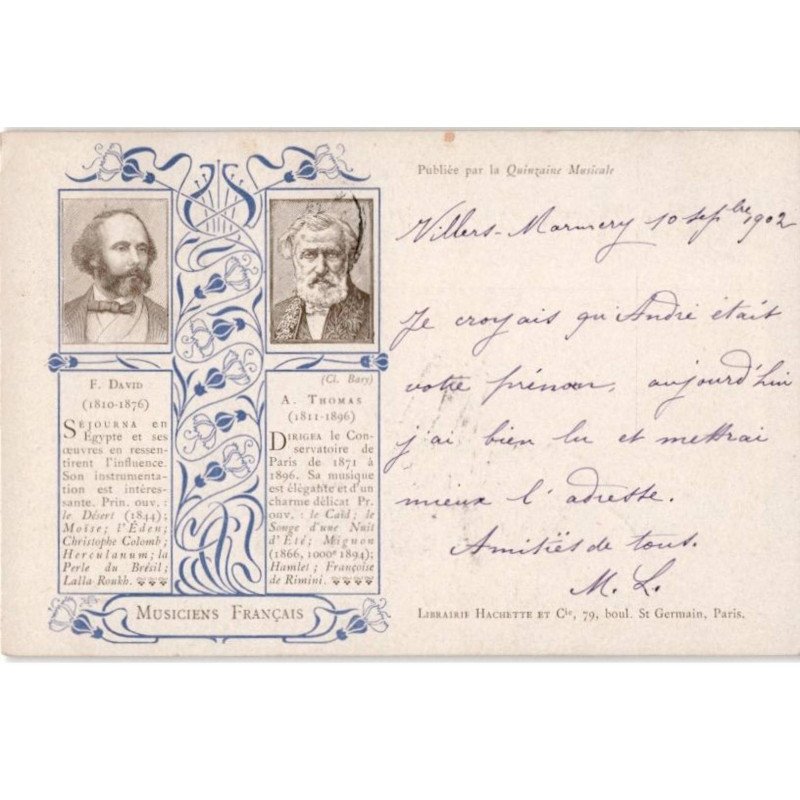 F. David
(1810-1876)
Séjourna en
Égypte et ses
œuvres en ressen-
tirent l'influence.
Son instrumenta-
tion est intéres-
sante. Prin. ouv. :
le Désert (1844);
Moïse; l'Éden;
Christophe Colomb;
Herculanum; la
Perle du Brésil;
Lalla Roukh.
(Cl. Bary)
A. Thomas
(1811-1896)
Dirigea le Con-
servatoire de
Paris de 1871 à
1896. Sa musique
est élégante et d'un
charme délicat Pr.
ouv. : le Caïd; le
Songe d'une Nuit
d'Été; Mignon
(1866, 1000e 1894);
Hamlet; Françoise
de Rimini.
Musiciens Français
Publiée par la Quinzaine Musicale
Villers-Marmery 10 sepbre 1902
Je croyais qu'André était
votre prénom, aujourd'hui
j'ai bien lu et mettrai
mieux l'adresse.
Amitiés de tous.
M. L.
Librairie Hachette et Cie, 79, boul. St Germain, Paris.